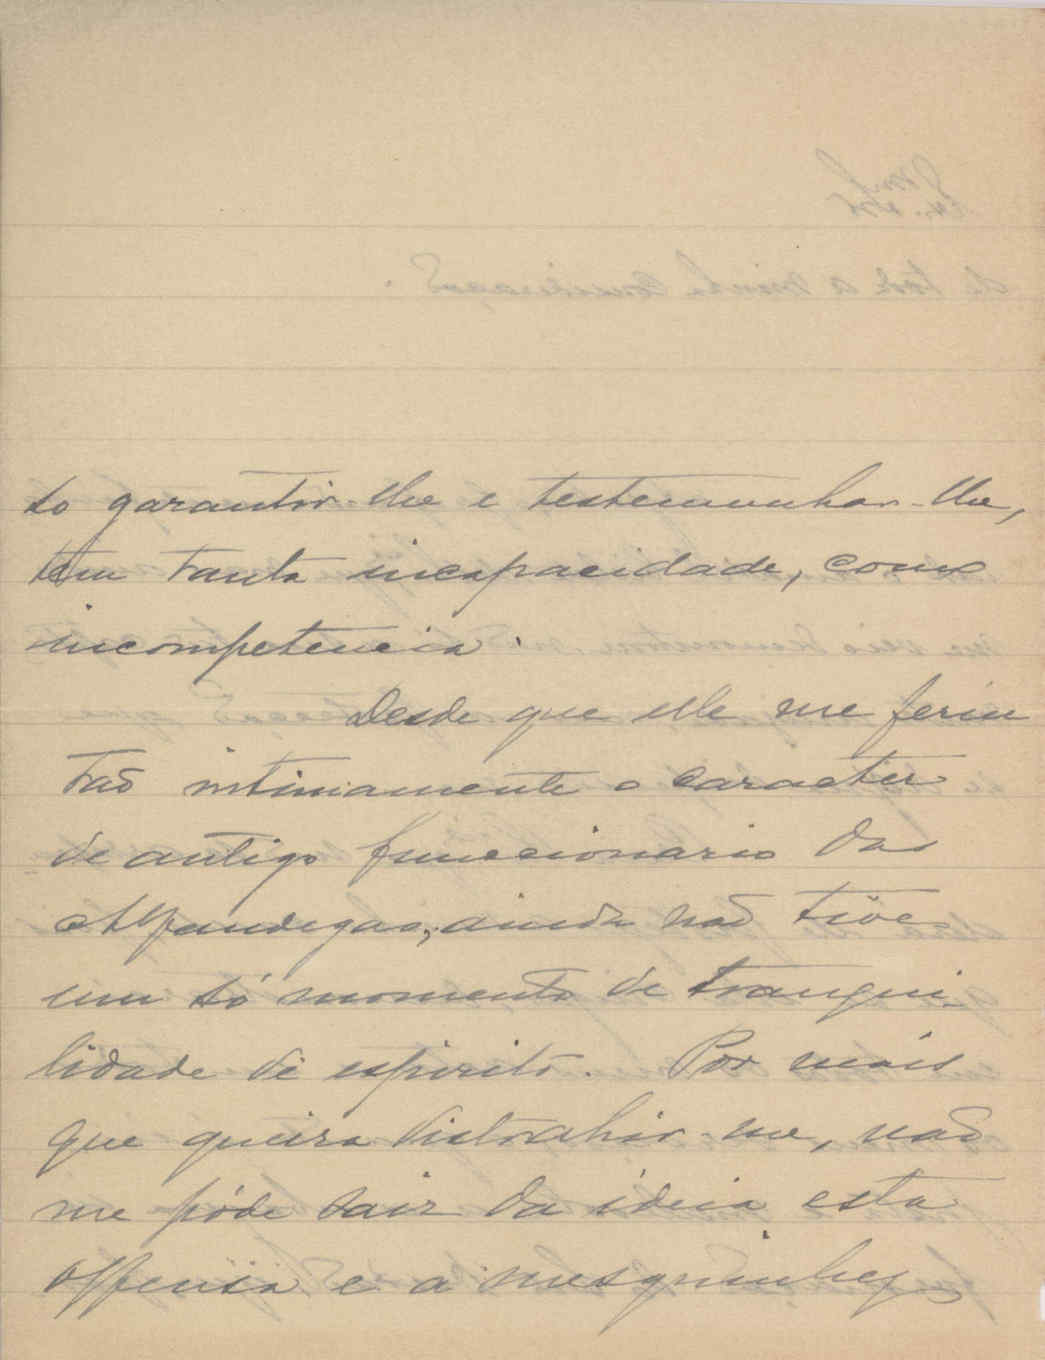 so garantir-lhe e testemunhar-lhe,
tem tanta incapacidade, como
incompetencia.
Desde que elle me feriu
tão intimamente o caracter
de antigo funccionario das
Alfandegas, ainda não tive
um só momento de tranqui-
lidade de espirito. Por mais
que queira distrahir-me, não
me póde sair da ideia esta
offensa e a mesquinhez